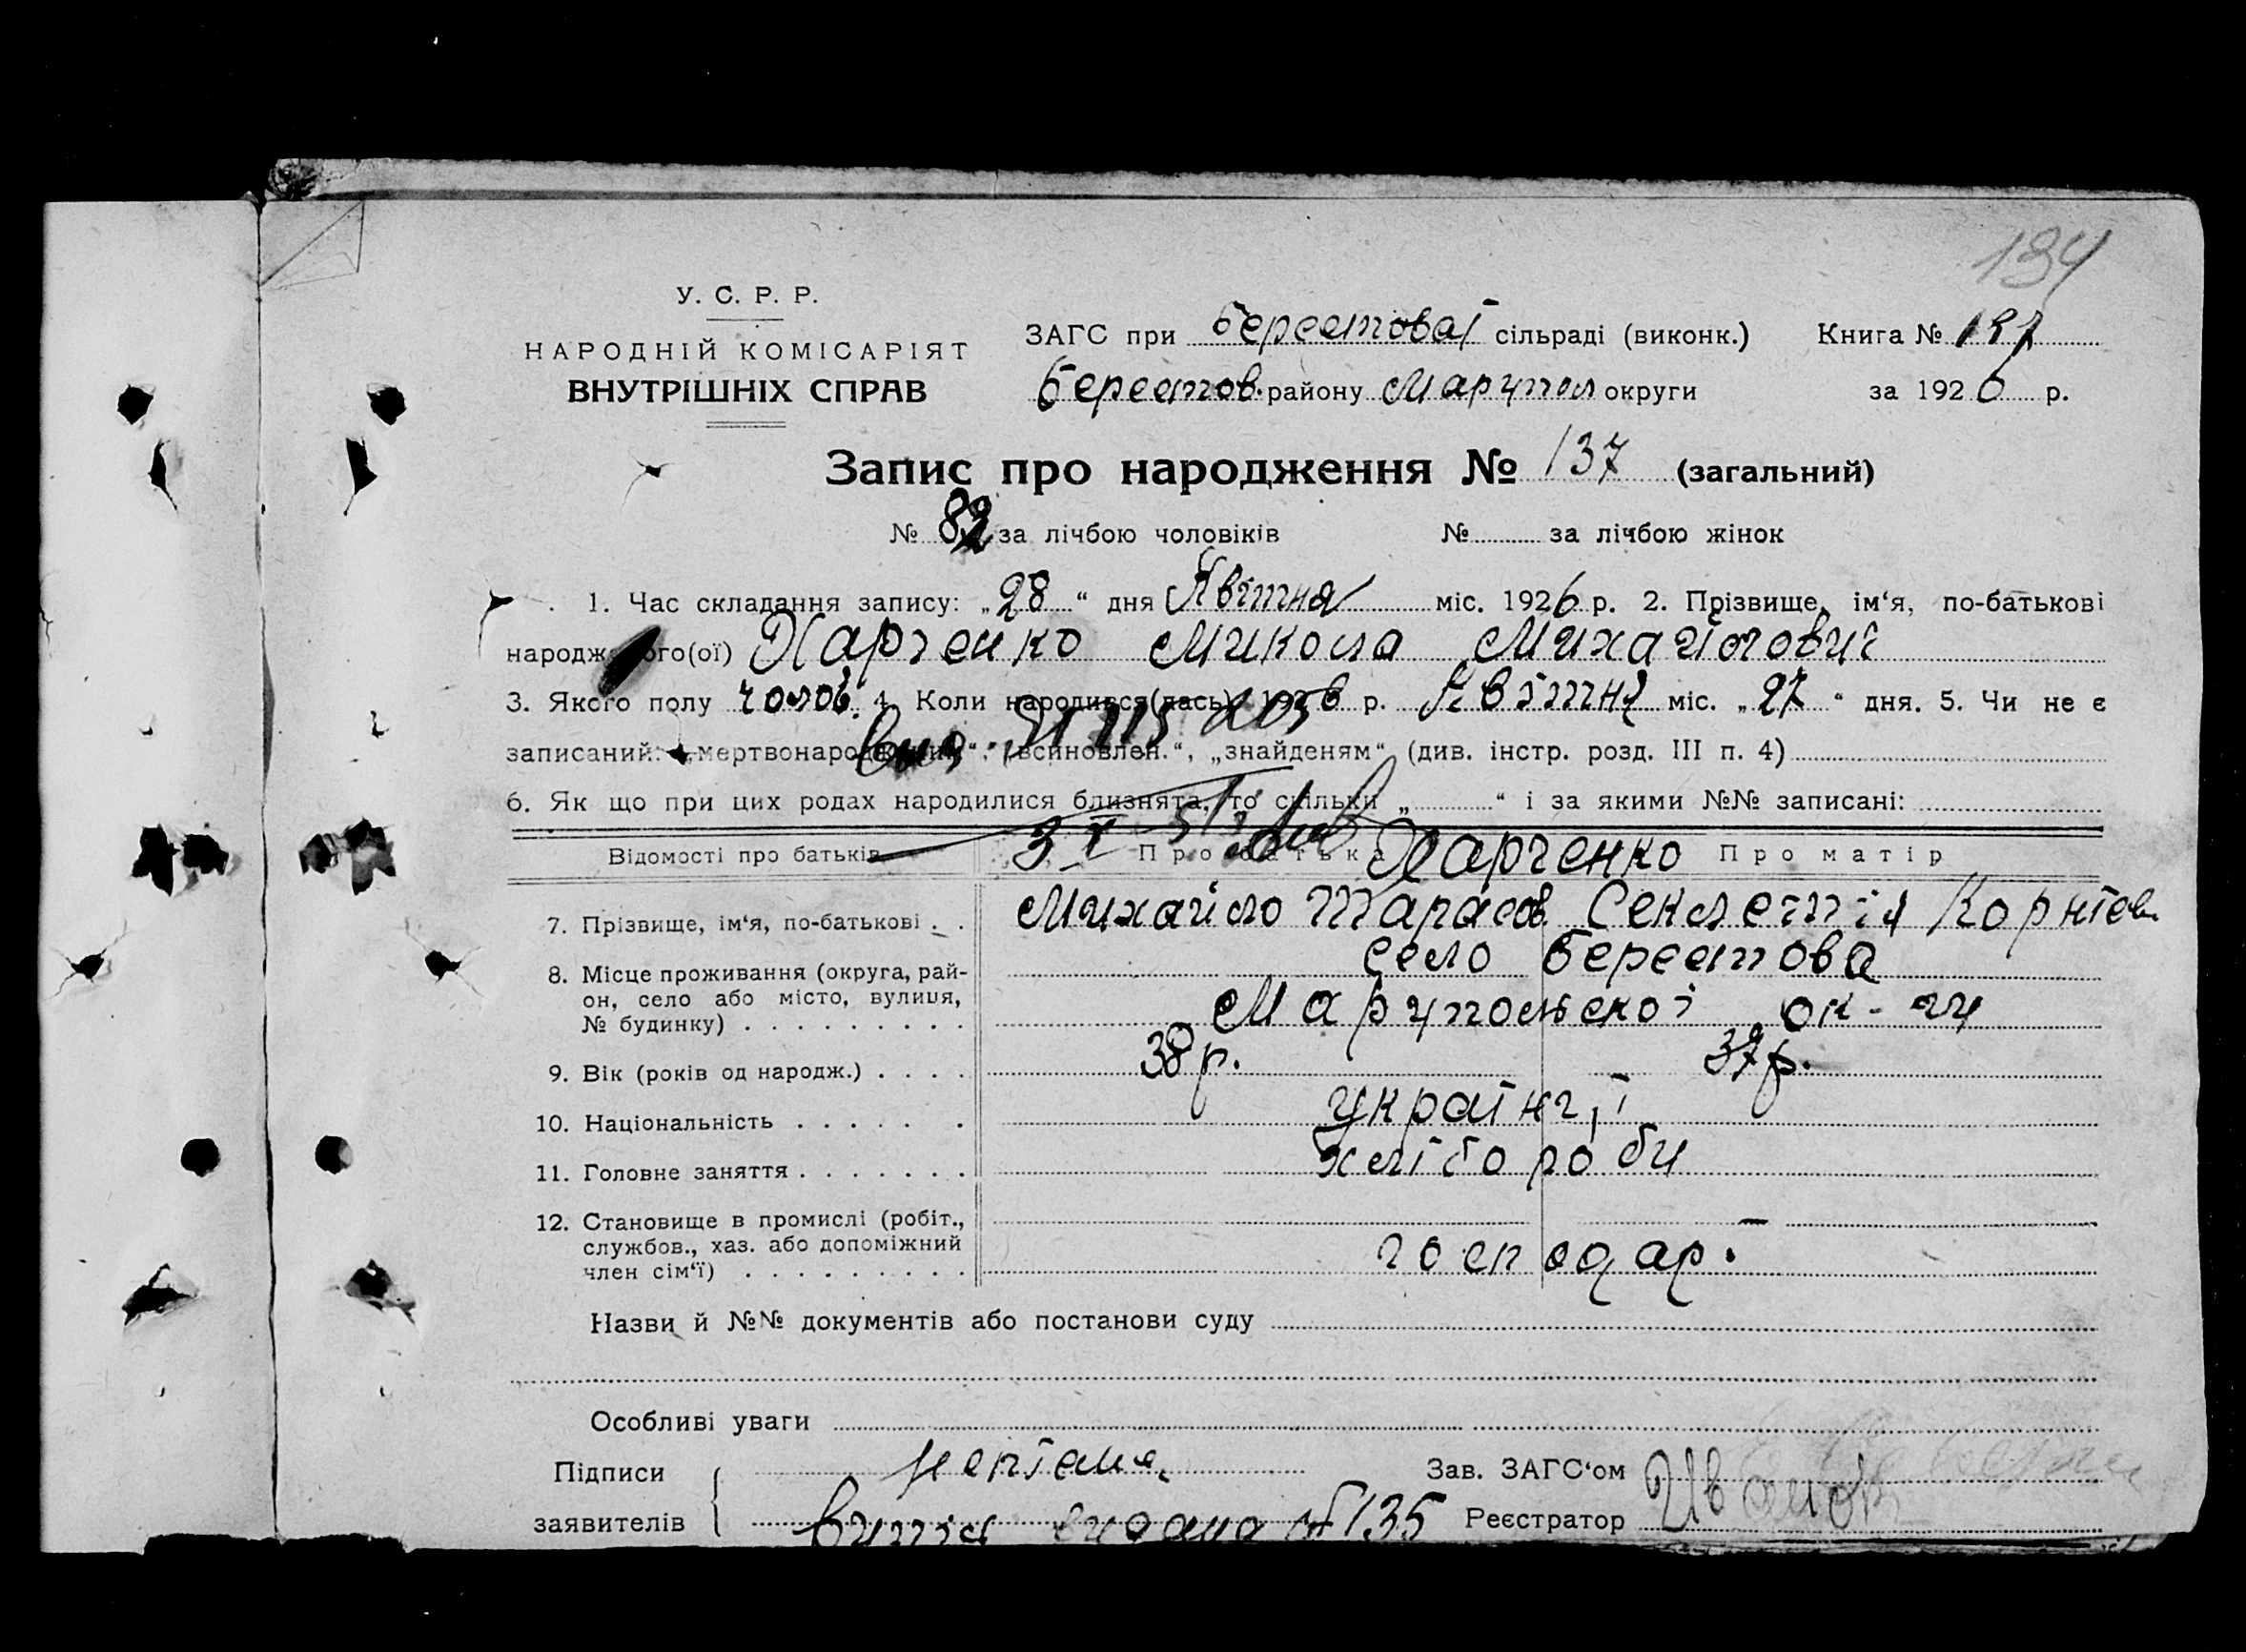 194
У. С. Р. Р.
НАРОДНІЙ КОМІСАРІЯТ
ВНУТРІШНІХ СПРАВ
ЗАГС при Берестовій сільраді (виконк.) Книга №
Берестов. району Марупол округи за 1926 р.
Запис про народження № 137 (загальний)
№ 82 за лічбою чоловіків № за лічбою жінок
1. Час складання запису: „28“ дня Квітня міс. 1926 р. 2. Прізвище, ім‘я, по-батькові
народженого(ої) Харченко Микола Михайлович
3. Якого полу чолов. 4. Коли народився(лась) 1926 р. Квітня міс. „27“ дня. 5. Чи не є
записаний: „мертвонароджений“, „всиновлен.“, „знайденям“ (див. інстр. розд. III п. 4)
6. Як що при цих родах народилися близнята, то скільки „ “ і за якими №№ записані:
Відомості про батьків Про батька Харченко Про матір
7. Прізвище, ім‘я, по-батькові . . Михайло Тарасов. Секлетія Корнієв.
8. Місце проживання (округа, рай- село Берестова
он, село або місто, вулиця, Марупольської ок-ги
№ будинку) . . . . . . . . .
9. Вік (років од народж.) . . . . 38 р. 37 р.
10. Національність . . . . . . . українці
11. Головне заняття . . . . . . . хлібороби
12. Становище в промислі (робіт., –
службов., хаз. або допоміжний господар.
член сім‘ї) . . . . . . . . .
Назви й №№ документів або постанови суду
Особливі уваги
Підписи непісьм. Зав. ЗАГС‘ом
заявителів Витяг видана № 135 Реєстратор Иванов